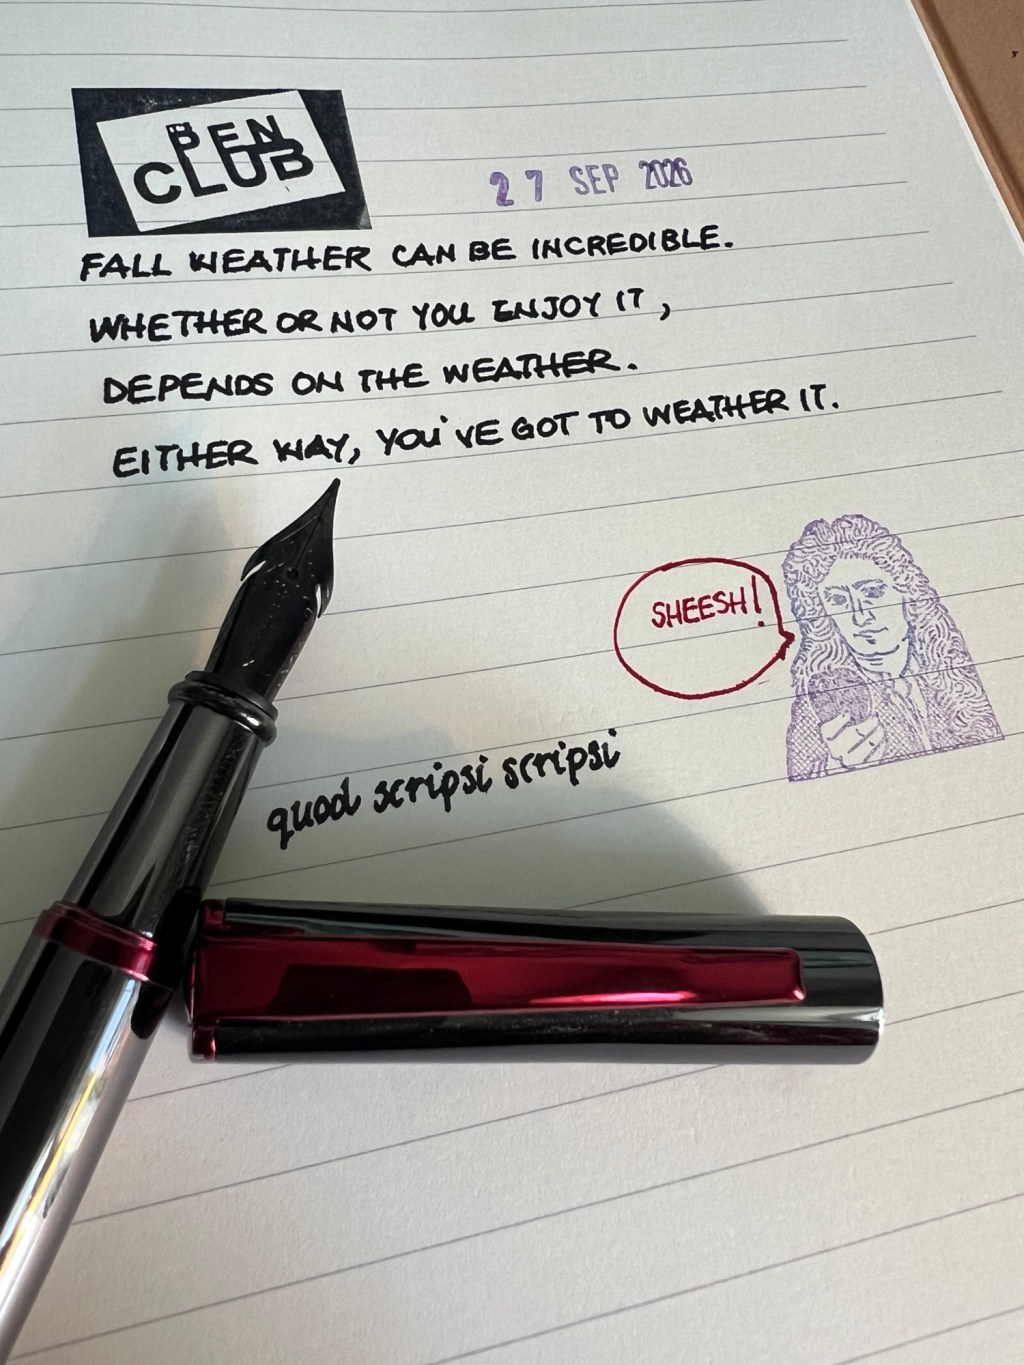 PEN
CLUB
27 SEP 2026
FALL WEATHER CAN BE INCREDIBLE.
WHETHER OR NOT YOU ENJOY IT,
DEPENDS ON THE WEATHER.
EITHER WAY, YOU'VE GOT TO WEATHER IT.
SHEESH!
quod scripsi scripsi